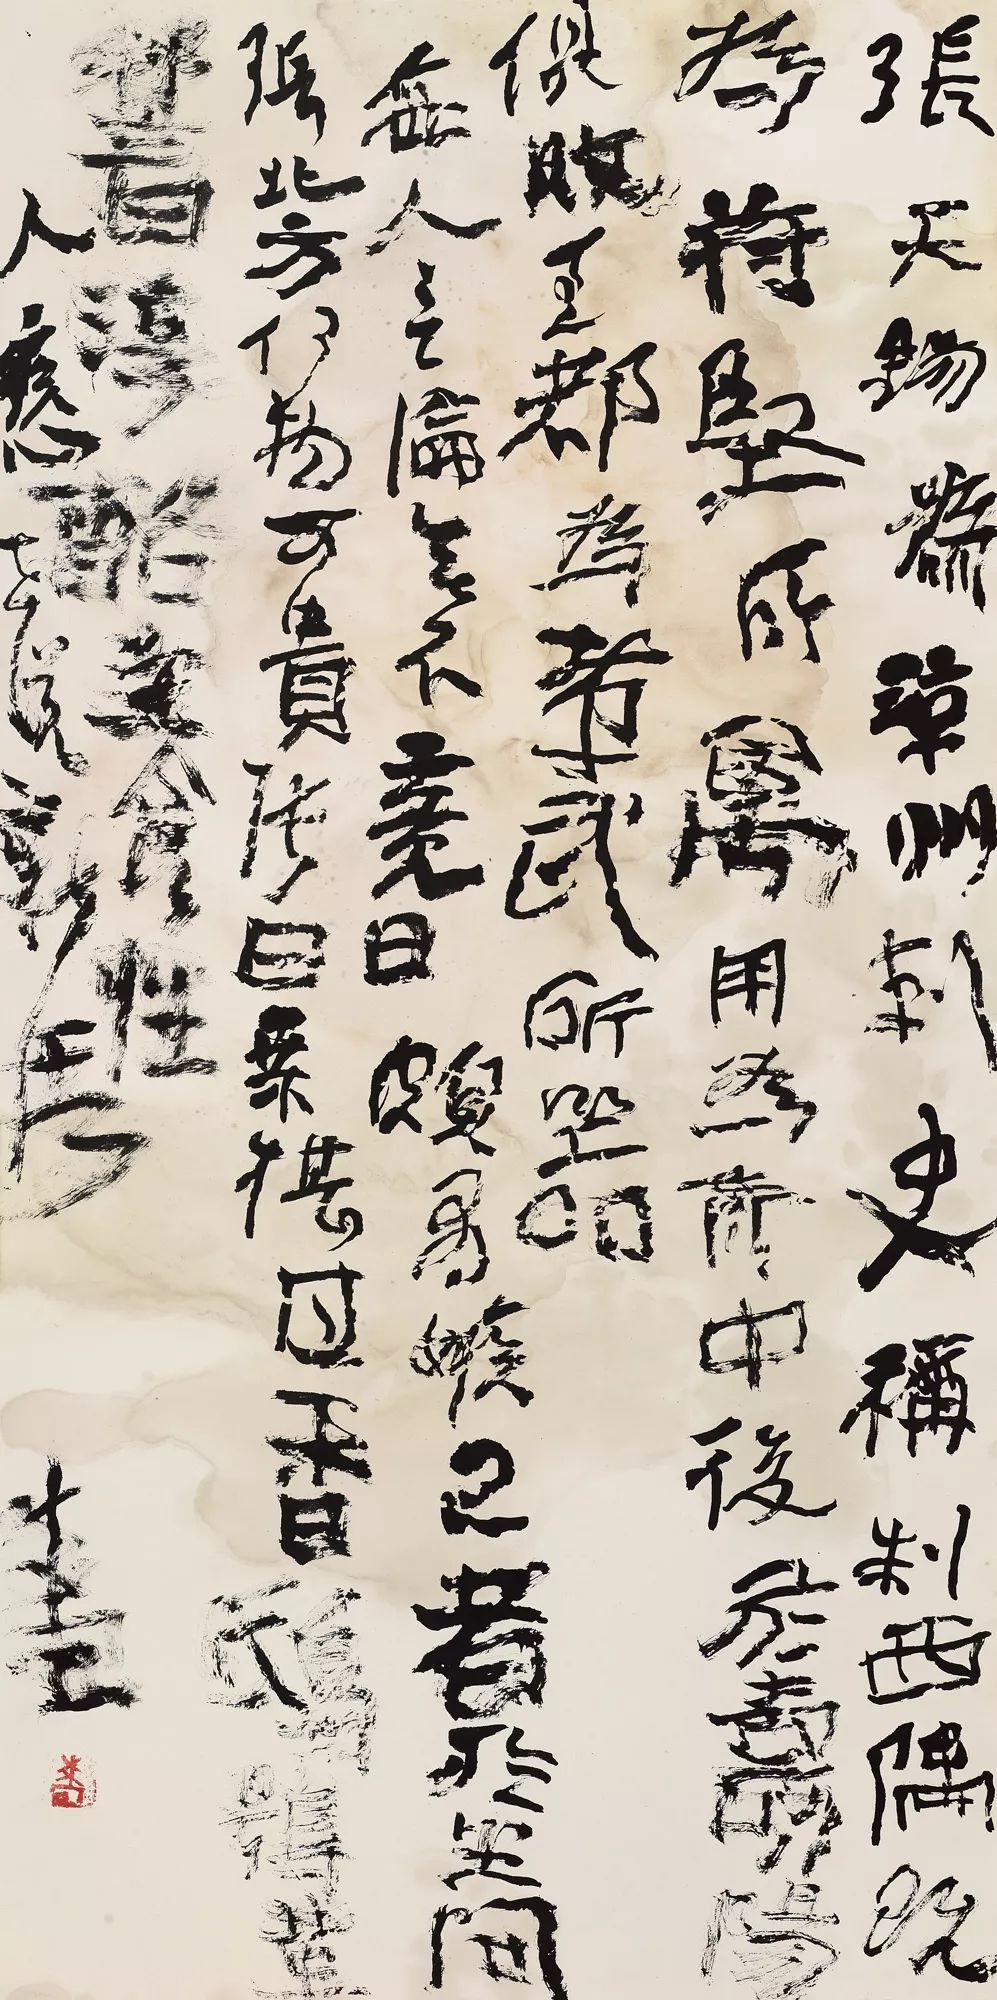 張天錫為涼州刺史稱制西隅既
為苻堅所禽用為侍中後於壽陽
俱敗至都為孝武所器
每入言論無不竟日頗有嫉己者於坐問
張北方何物可貴張曰桑椹甘香鴟鴞革
響淳酪養性
人 心 書